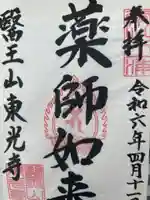 奉拝
令和六年四月十一
薬師如来
醫王山東光寺